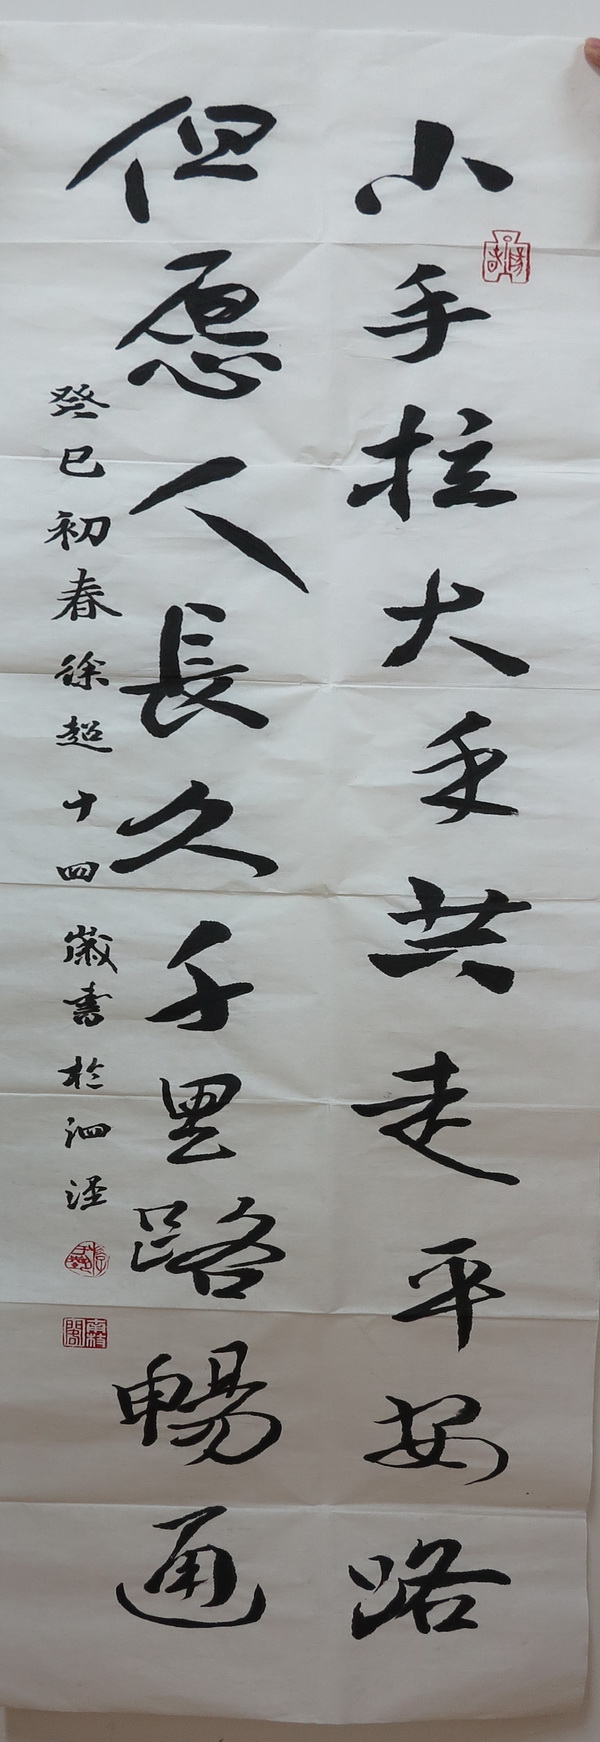 小手拉大手共走平安路
但愿人長久千里路暢通
癸巳初春徐超十四歲書於泗涇